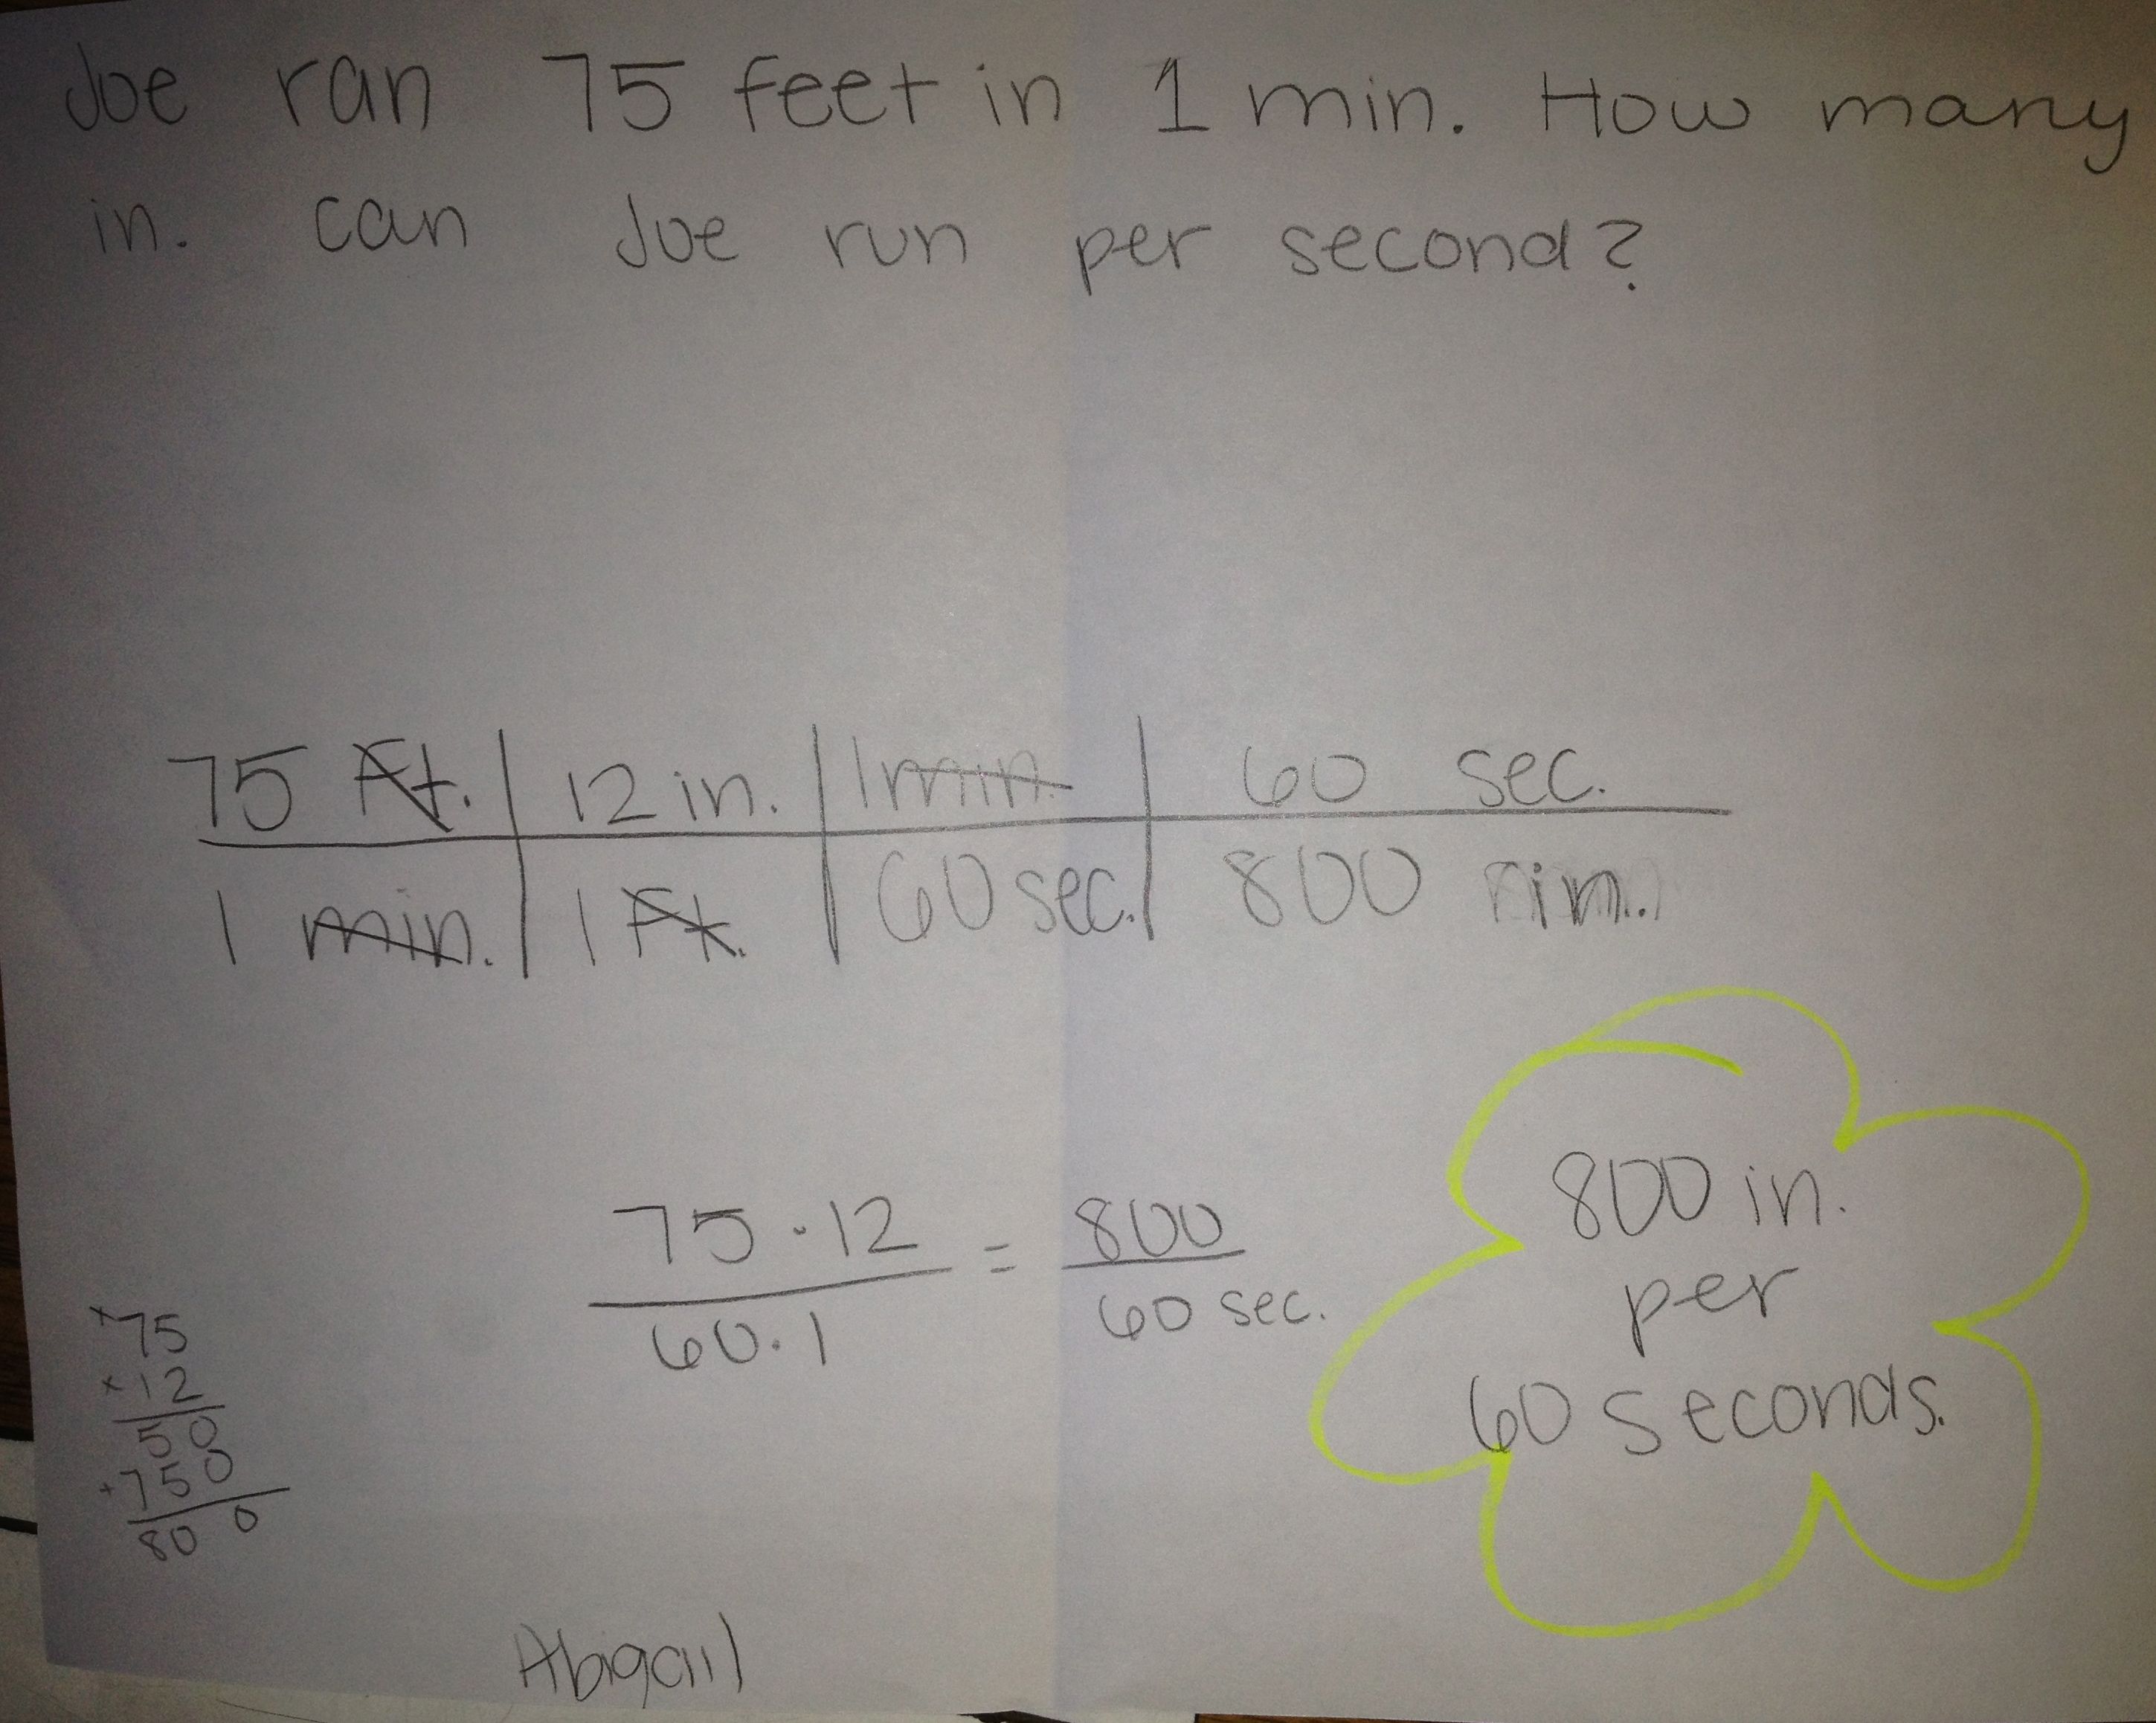 Joe ran 75 feet in 1 min. How many
in. can Joe run per second?
75 Ft. | 12 in. | 1 min. | 60 sec.
1 min. | 1 Ft. | 60 sec. | 800 in.
75 · 12 = 800
60 · 1 60 sec.
800 in.
per
60 seconds.
75
× 12
50
+ 750
800
Abigail